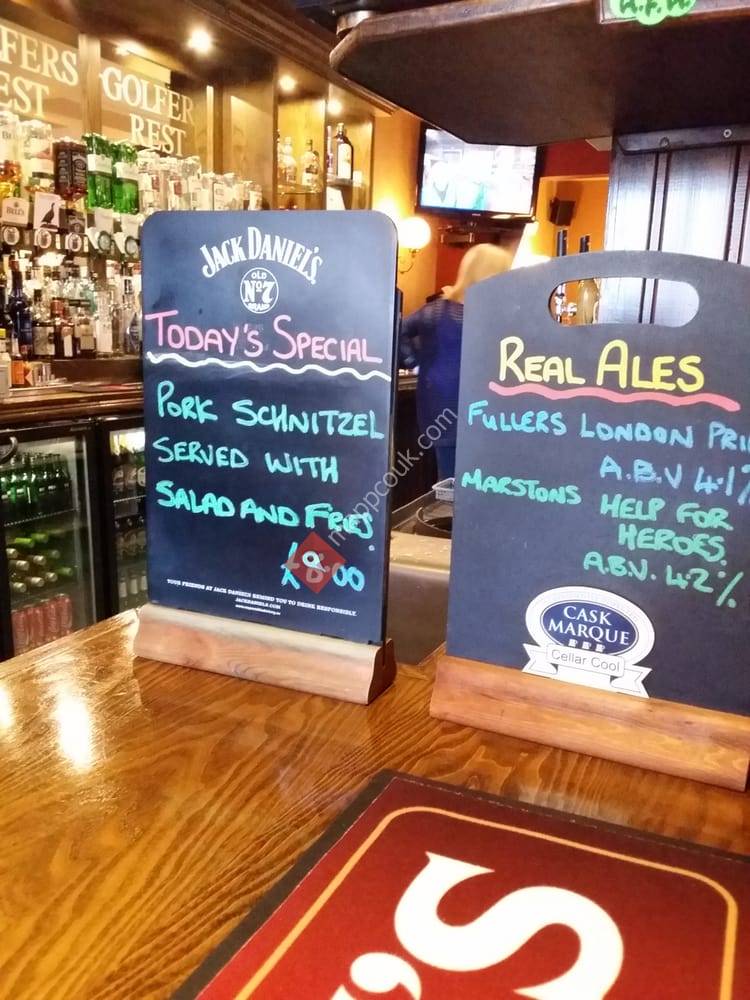 FERS
EST
GOLFER
REST
BELL'S
JACK DANIEL'S
OLD
No 7
BRAND
TODAY'S SPECIAL
PORK SCHNITZEL
SERVED WITH
SALAD AND FRIES
£8.00
YOUR FRIENDS AT JACK DANIEL'S REMIND YOU TO DRINK RESPONSIBLY.
JACKDANIELS.COM
REAL ALES
FULLERS LONDON PRI
A.B.V 4.1%
MARSTONS HELP FOR
HEROES.
A.B.V. 4.2%
CASK
MARQUE
Cellar Cool
mappcouk.com
'S